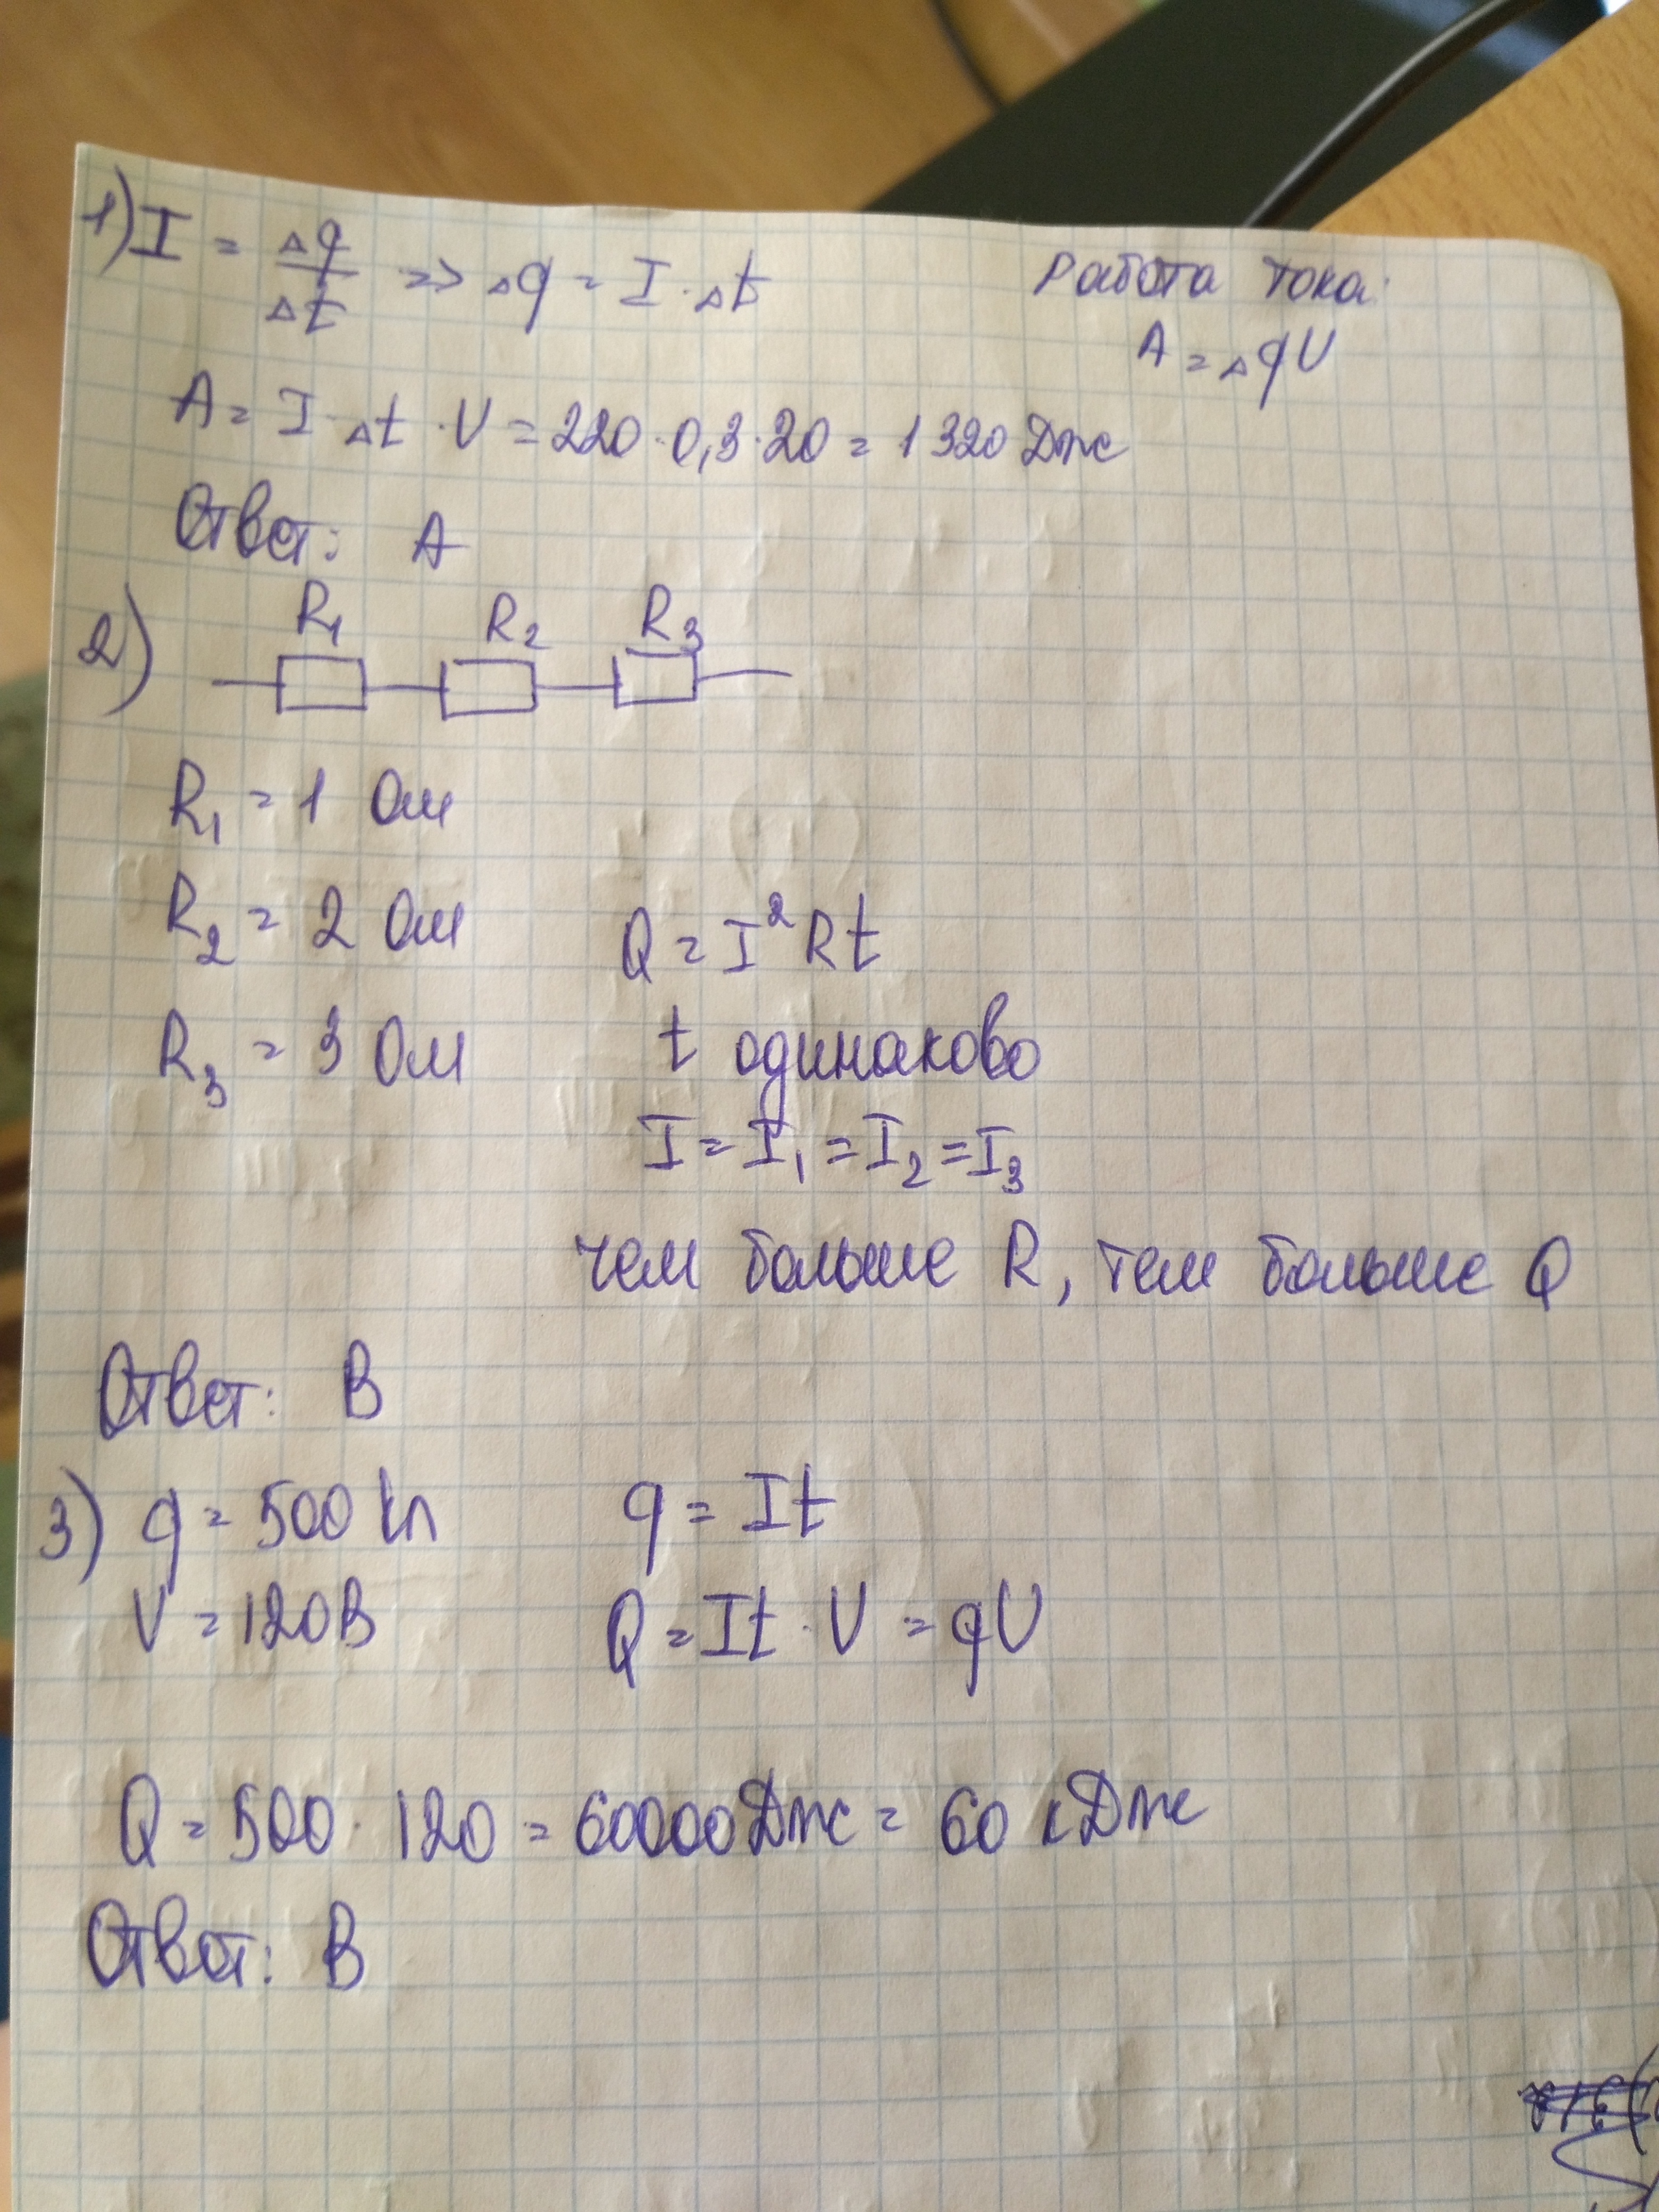 1) I = Δq/Δt => Δq = I·Δt
Работа тока:
A = ΔqU
A = I·Δt·U = 220·0,3·20 = 1320 Дж
Ответ: А
2) R₁ R₂ R₃
R₁ = 1 Ом
R₂ = 2 Ом
Q = I²Rt
R₃ = 3 Ом
t одинаково
I = I₁ = I₂ = I₃
чем больше R, тем больше Q
Ответ: В
3) q = 500 Кл
q = It
U = 120В
Q = It·U = qU
Q = 500·120 = 60000Дж = 60 кДж
Ответ: В